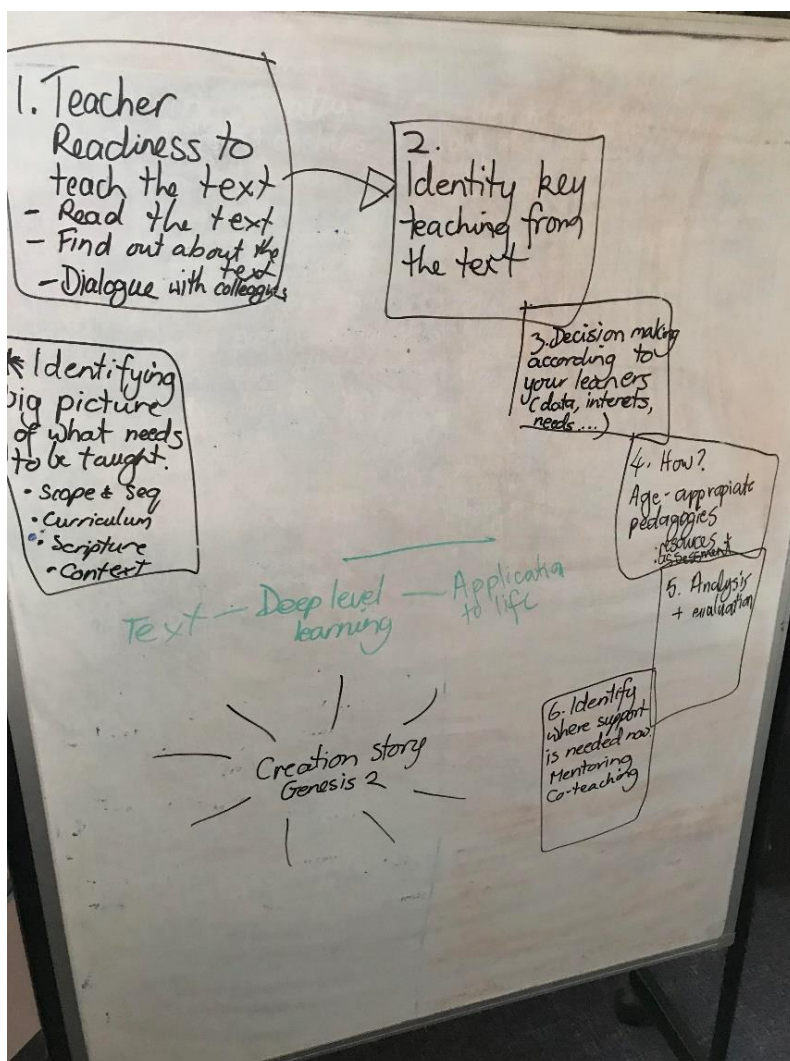 1. Teacher
Readiness to
teach the text
- Read the text
- Find out about the
text
- Dialogue with colleagues
2.
Identity key
teaching from
the text
3. Decision making
according to
your leachers
(data, interets,
needs...)
4. How?
Age-appropiate
pedagogies
resources
assessment
5. Analysis
+ evaluation
6. Identify
where support
is needed now.
Mentoring
Co-teaching
* Identifying
big picture
of what needs
to be taught.
• Scope & Seq
• Curriculum
• Scripture
• Context
Text — Deep level — Application
learning to life
Creation Story
Genesis 2